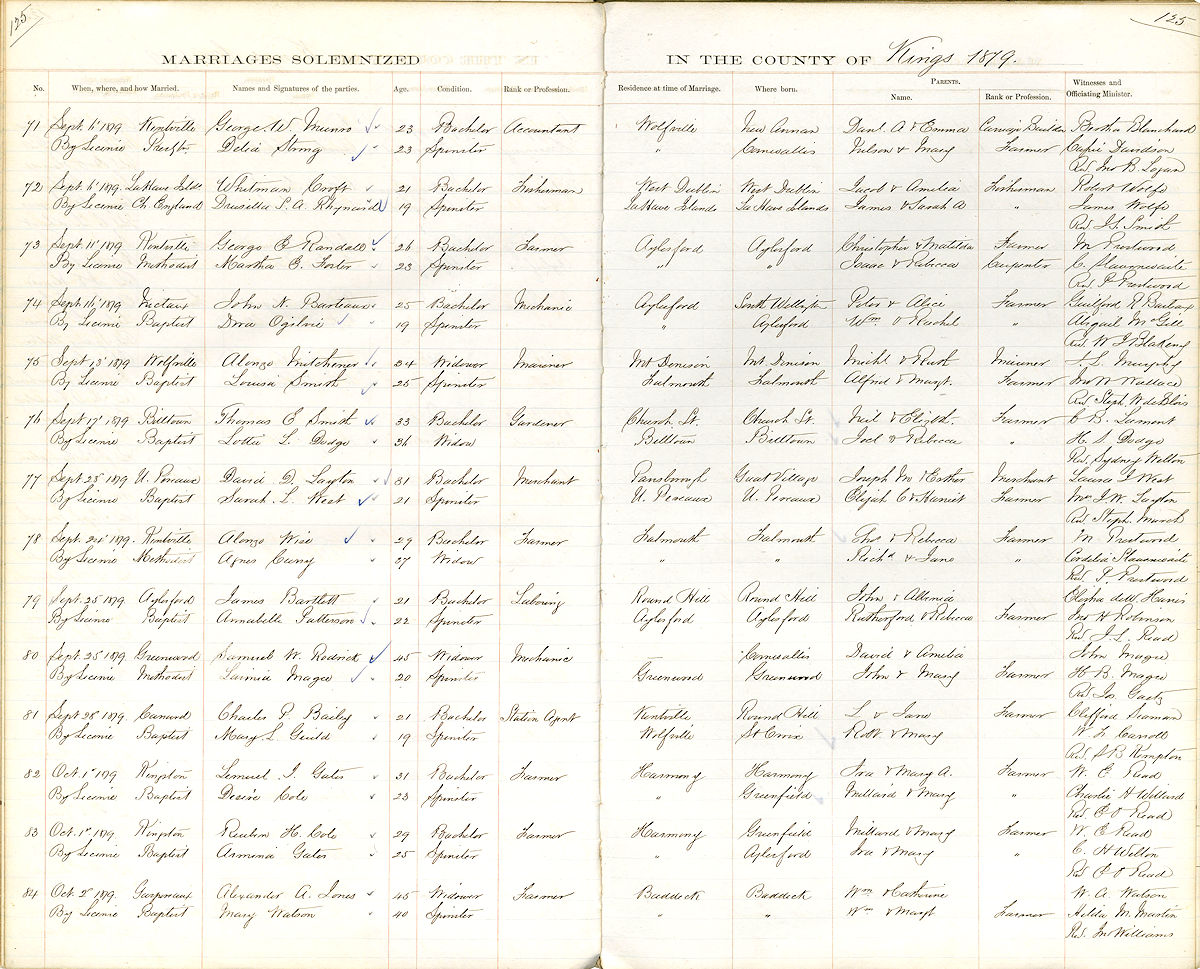 125 125
MARRIAGES SOLEMNIZED IN THE COUNTY OF Kings 1879.
No. When, where, and how Married. Names and Signatures of the parties. Age. Condition. Rank or Profession. Residence at time of Marriage. Where born. PARENTS. Name. Rank or Profession. Witnesses and Officiating Minister.
71 Sept. 6' 1879 Kentville George W. Munro 23 Bachelor Accountant Wolfville New Annan Danl. A & Emma Carriage Builder Bertha Blanchard
By License Presbt. Delia Strong 23 Spinster " Cornwallis Wilson & Mary Farmer Davidson
Rev. Jno B. Logan
72 Sept. 6' 1879. LaHave Islds Whitman Croft 21 Bachelor Fisherman West Dublin West Dublin Jacob & Amelia Fisherman Robert Wolfe
By License Ch England Drusilla S. A. 19 Spinster LaHave Islands LaHave Islands James & Sarah A " James Wolfe
Rev. J. S. Smith
73 Sept. 11' 1879 Kentville George E Randall 26 Bachelor Farmer Aylesford Aylesford Christopher & Matilda Farmer M Prestwood
By License Methodist Martha E. Foster 23 Spinster " " Isaac & Rebecca Carpenter C.
Rev. P Prestwood
74 Sept. 16' 1879 Nictaux John N. Barteaux 25 Bachelor Mechanic Aylesford South Peter & Alice Farmer Guilford R Barteaux
By License Baptist Dora Ogilvie 19 Spinster " Aylesford Wm & Rachel " Abigail McGill
Rev. W J Blakeny
75 Sept 13' 1879 Wolfville Alonzo Mitchener 24 Widower Mariner Mt Denison Mt Denison Michl & Ruth Mariner J. L. Murphy
By License Baptist Louisa Smith 25 Spinster Falmouth Falmouth Alfred & Margt. Farmer Jno W Wallace
Rev Steph. W deBlois
76 Sept 17' 1879 Billtown Thomas E Smith 33 Bachelor Gardener Church St. Church St. Neil & Elizth. Farmer C B. Lamont
By License Baptist Lottie L. Dodge 26 Widow Billtown Billtown Joel & Rebecca " H. S Dodge
Rev. Sydney Welton
77 Sept 23' 1879 U. Pereaux David D. Layton 31 Bachelor Merchant Parrsborough Great Village Joseph M & Esther Merchant Laura J West
By License Baptist Sarah L. West 21 Spinster U. Pereaux U. Pereaux Elijah C & Harriet Farmer Mrs J. W. Layton
Rev Steph. March
78 Sept. 24' 1879. Kentville Alonzo Wise 29 Bachelor Farmer Falmouth Falmouth Thos & Rebecca Farmer M Prestwood
By License Methodist Agnes Curry 27 Widow " " Richd & Jane " Cordelia
Rev. P. Prestwood
79 Sept. 25 1879 Aylesford James Bartlett 21 Bachelor Laboring Round Hill Round Hill John & Harris
By License Baptist Annabelle Patterson 22 Spinster Aylesford Aylesford Rutherford & Rebecca Farmer Jno H Robinson
Rev. J. L. Read
80 Sept. 25' 1879 Greenwood Samuel W. Rodrick 45 Widower Mechanic Cornwallis David & Amelia John Magee
By License Methodist Magee 20 Spinster Greenwood Greenwood John & Mary Farmer H B. Magee
Rev. Jos. Gaetz
81 Sept 28' 1879 Canard Charles P. Baily 21 Bachelor Station Agent Kentville Round Hill L & Jane Farmer Clifford Seaman
By License Baptist Mary L. Geuld 19 Spinster Wolfville St Croix Robt & Mary W. L. Carroll
Rev. J B Kempton
82 Oct. 1st 1879 Kingston Lemuel J. Gates 31 Bachelor Farmer Harmony Harmony Ira & Mary A. Farmer W. E Read
By License Baptist Desire Cole 23 Spinster " Greenfield Millard & Mary " Charles H Willard
Rev. E O Read
83 Oct. 1st 1879 Kingston Reuben H. Cole 29 Bachelor Farmer Harmony Greenfield Millard & Mary Farmer W. E Read
By License Baptist Armina Gates 25 Spinster " Aylesford Ira & Mary " C. H Welton
Rev E O Read
84 Oct. 2' 1879. Gaspereaux Alexander A. Jones 45 Widower Farmer Baddeck Baddeck Wm & Cathrine W. A. Watson
By License Baptist Mary Watson 40 Spinster " " Wm & Margt Farmer M. Martin
Rev. Jno Williams